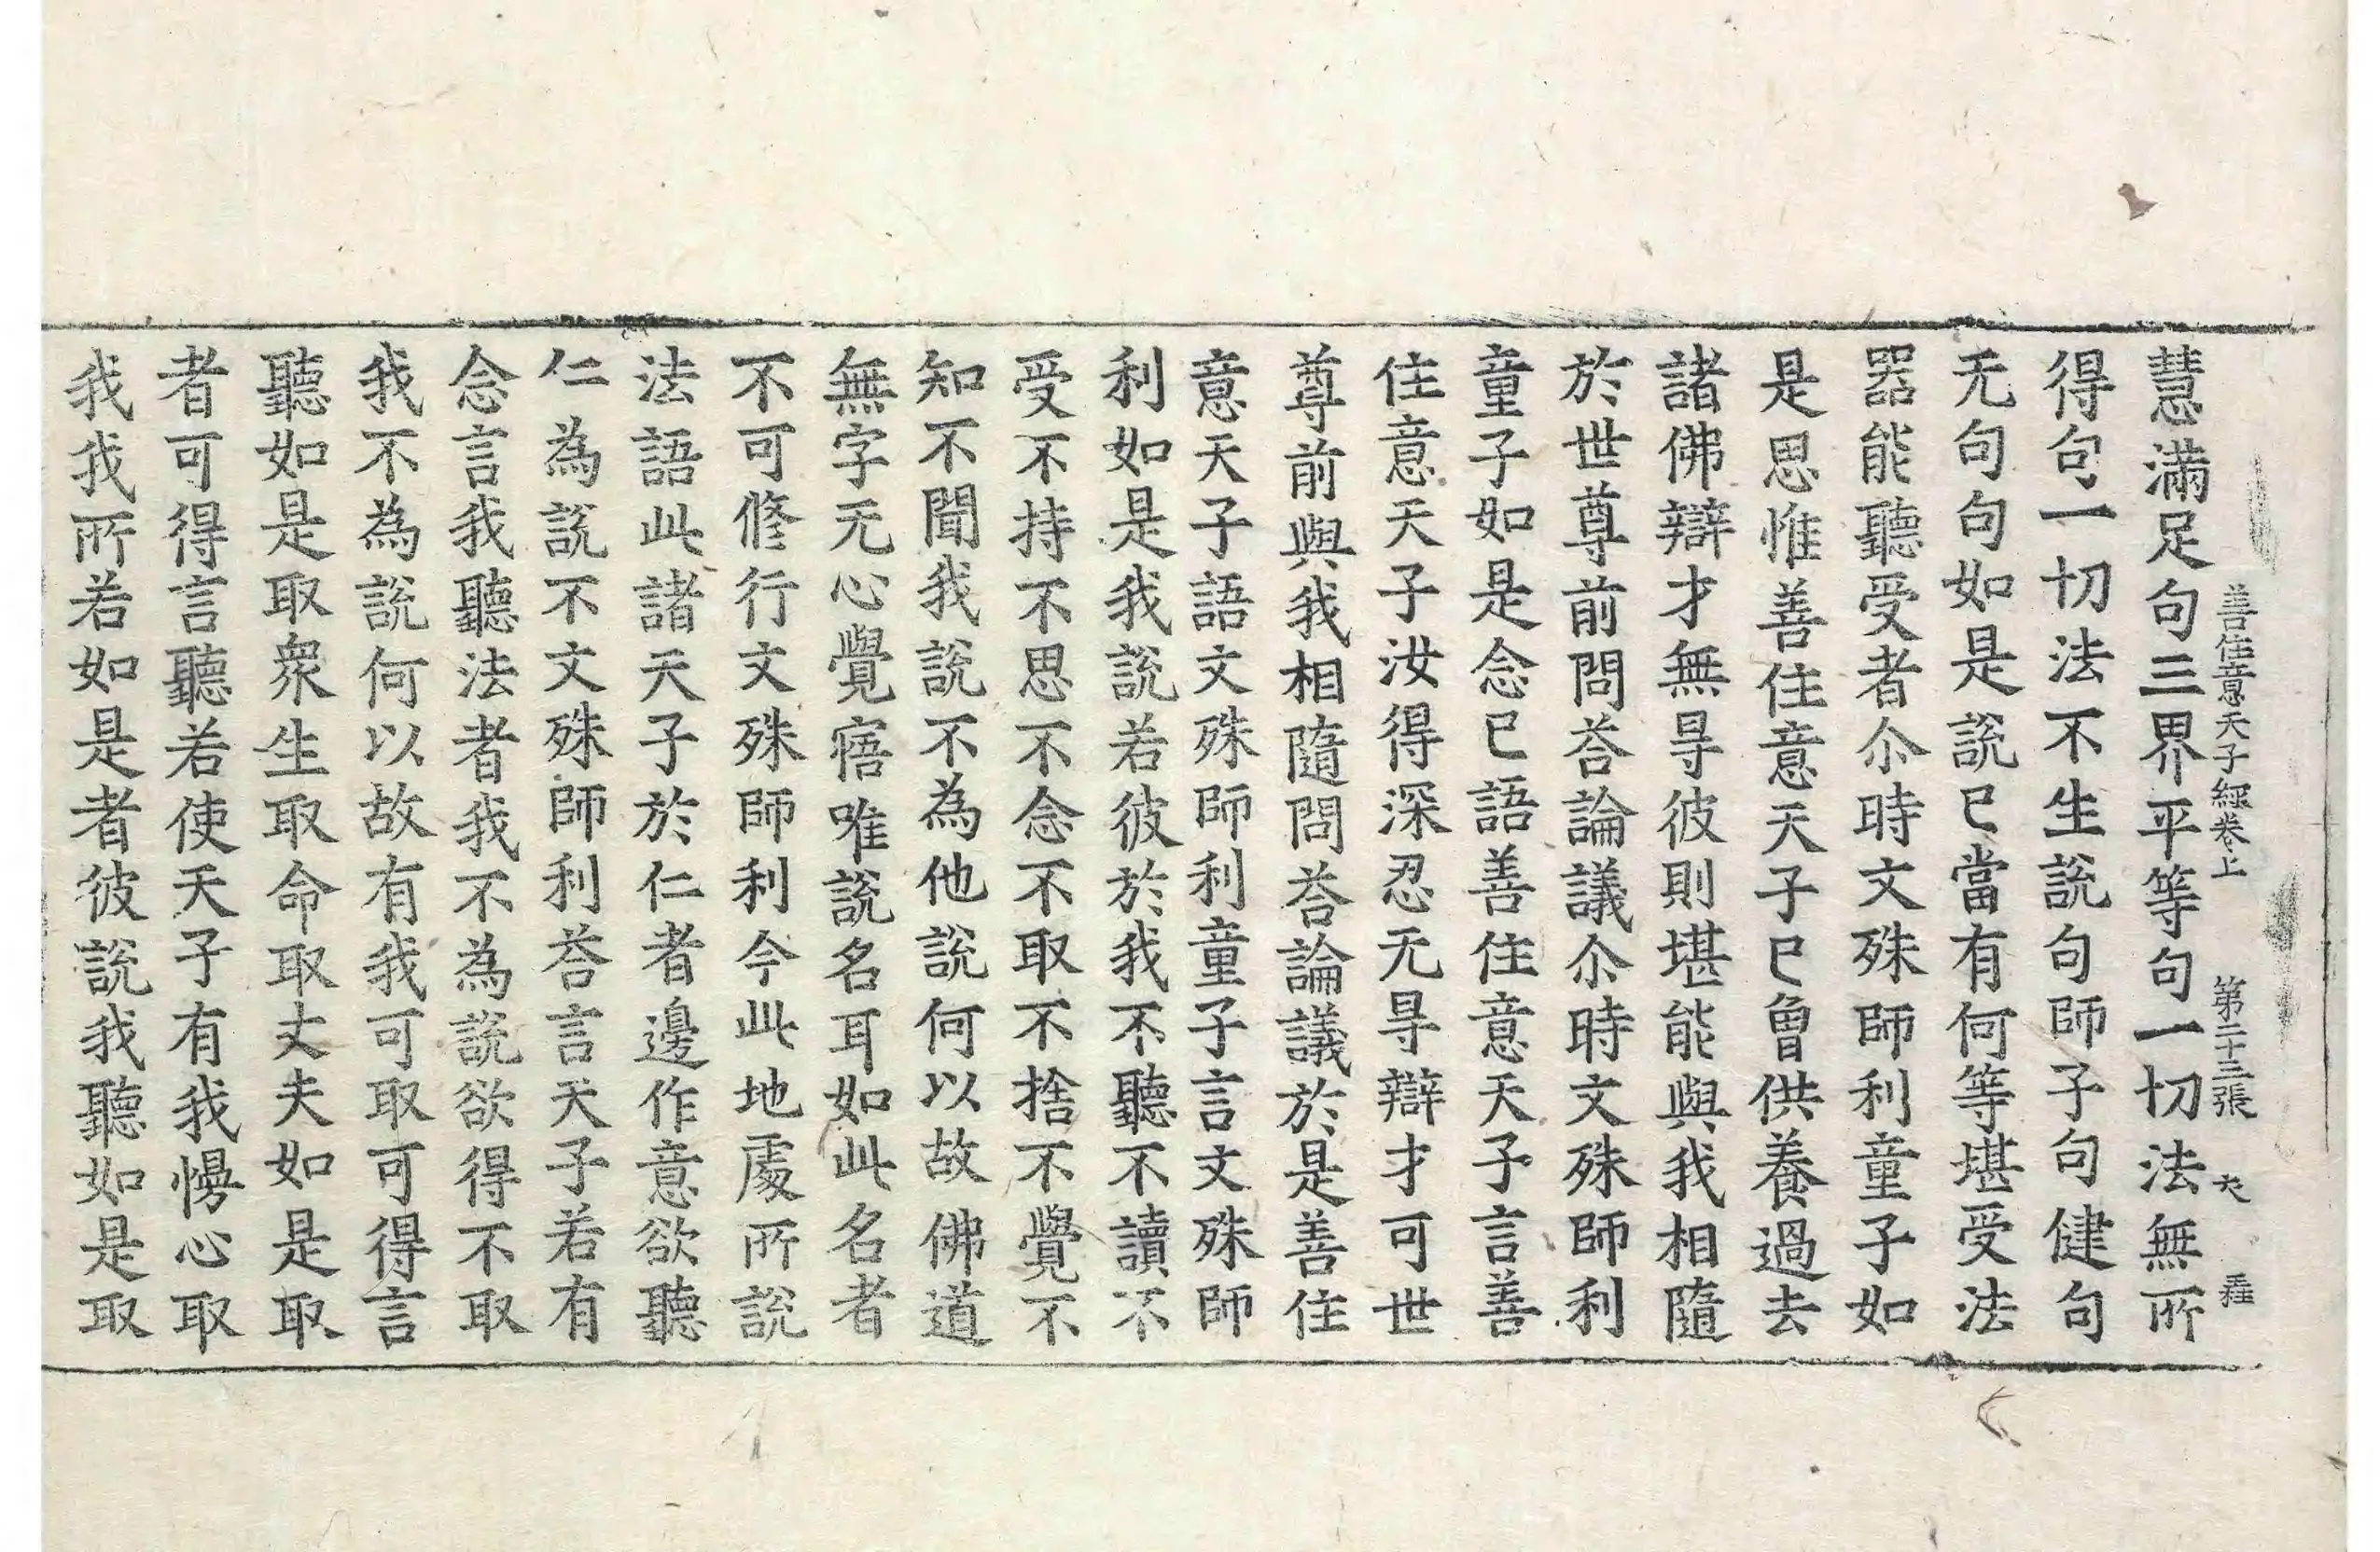 善住意天子經卷上　第二十三張
慧滿足句三界平等句一切法無所
得句一切法不生說句師子句健句
无句句如是說已當有何等堪受法
器能聽受者尒時文殊師利童子如
是思惟善住意天子已曾供養過去
諸佛辯才無㝵彼則堪能與我相隨
於世尊前問荅論議尒時文殊師利
童子如是念已語善住意天子言善
住意天子汝得深忍无㝵辯才可世
尊前與我相隨問荅論議於是善住
意天子語文殊師利童子言文殊師
利如是我說若彼於我不聽不讀不
受不持不思不念不取不捨不覺不
知不聞我說不為他說何以故佛道
無字无心覺寤唯說名耳如此名者
不可脩行文殊師利今此地處所說
法語此諸天子於仁者邊作意欲聽
仁為說不文殊師利荅言天子若有
念言我聽法者我不為說欲得不取
我不為說何以故有我可取可得言
聽如是取衆生取命取丈夫如是取
者可得言聽若使天子有我慢心取
我我所若如是者彼說我聽如是取